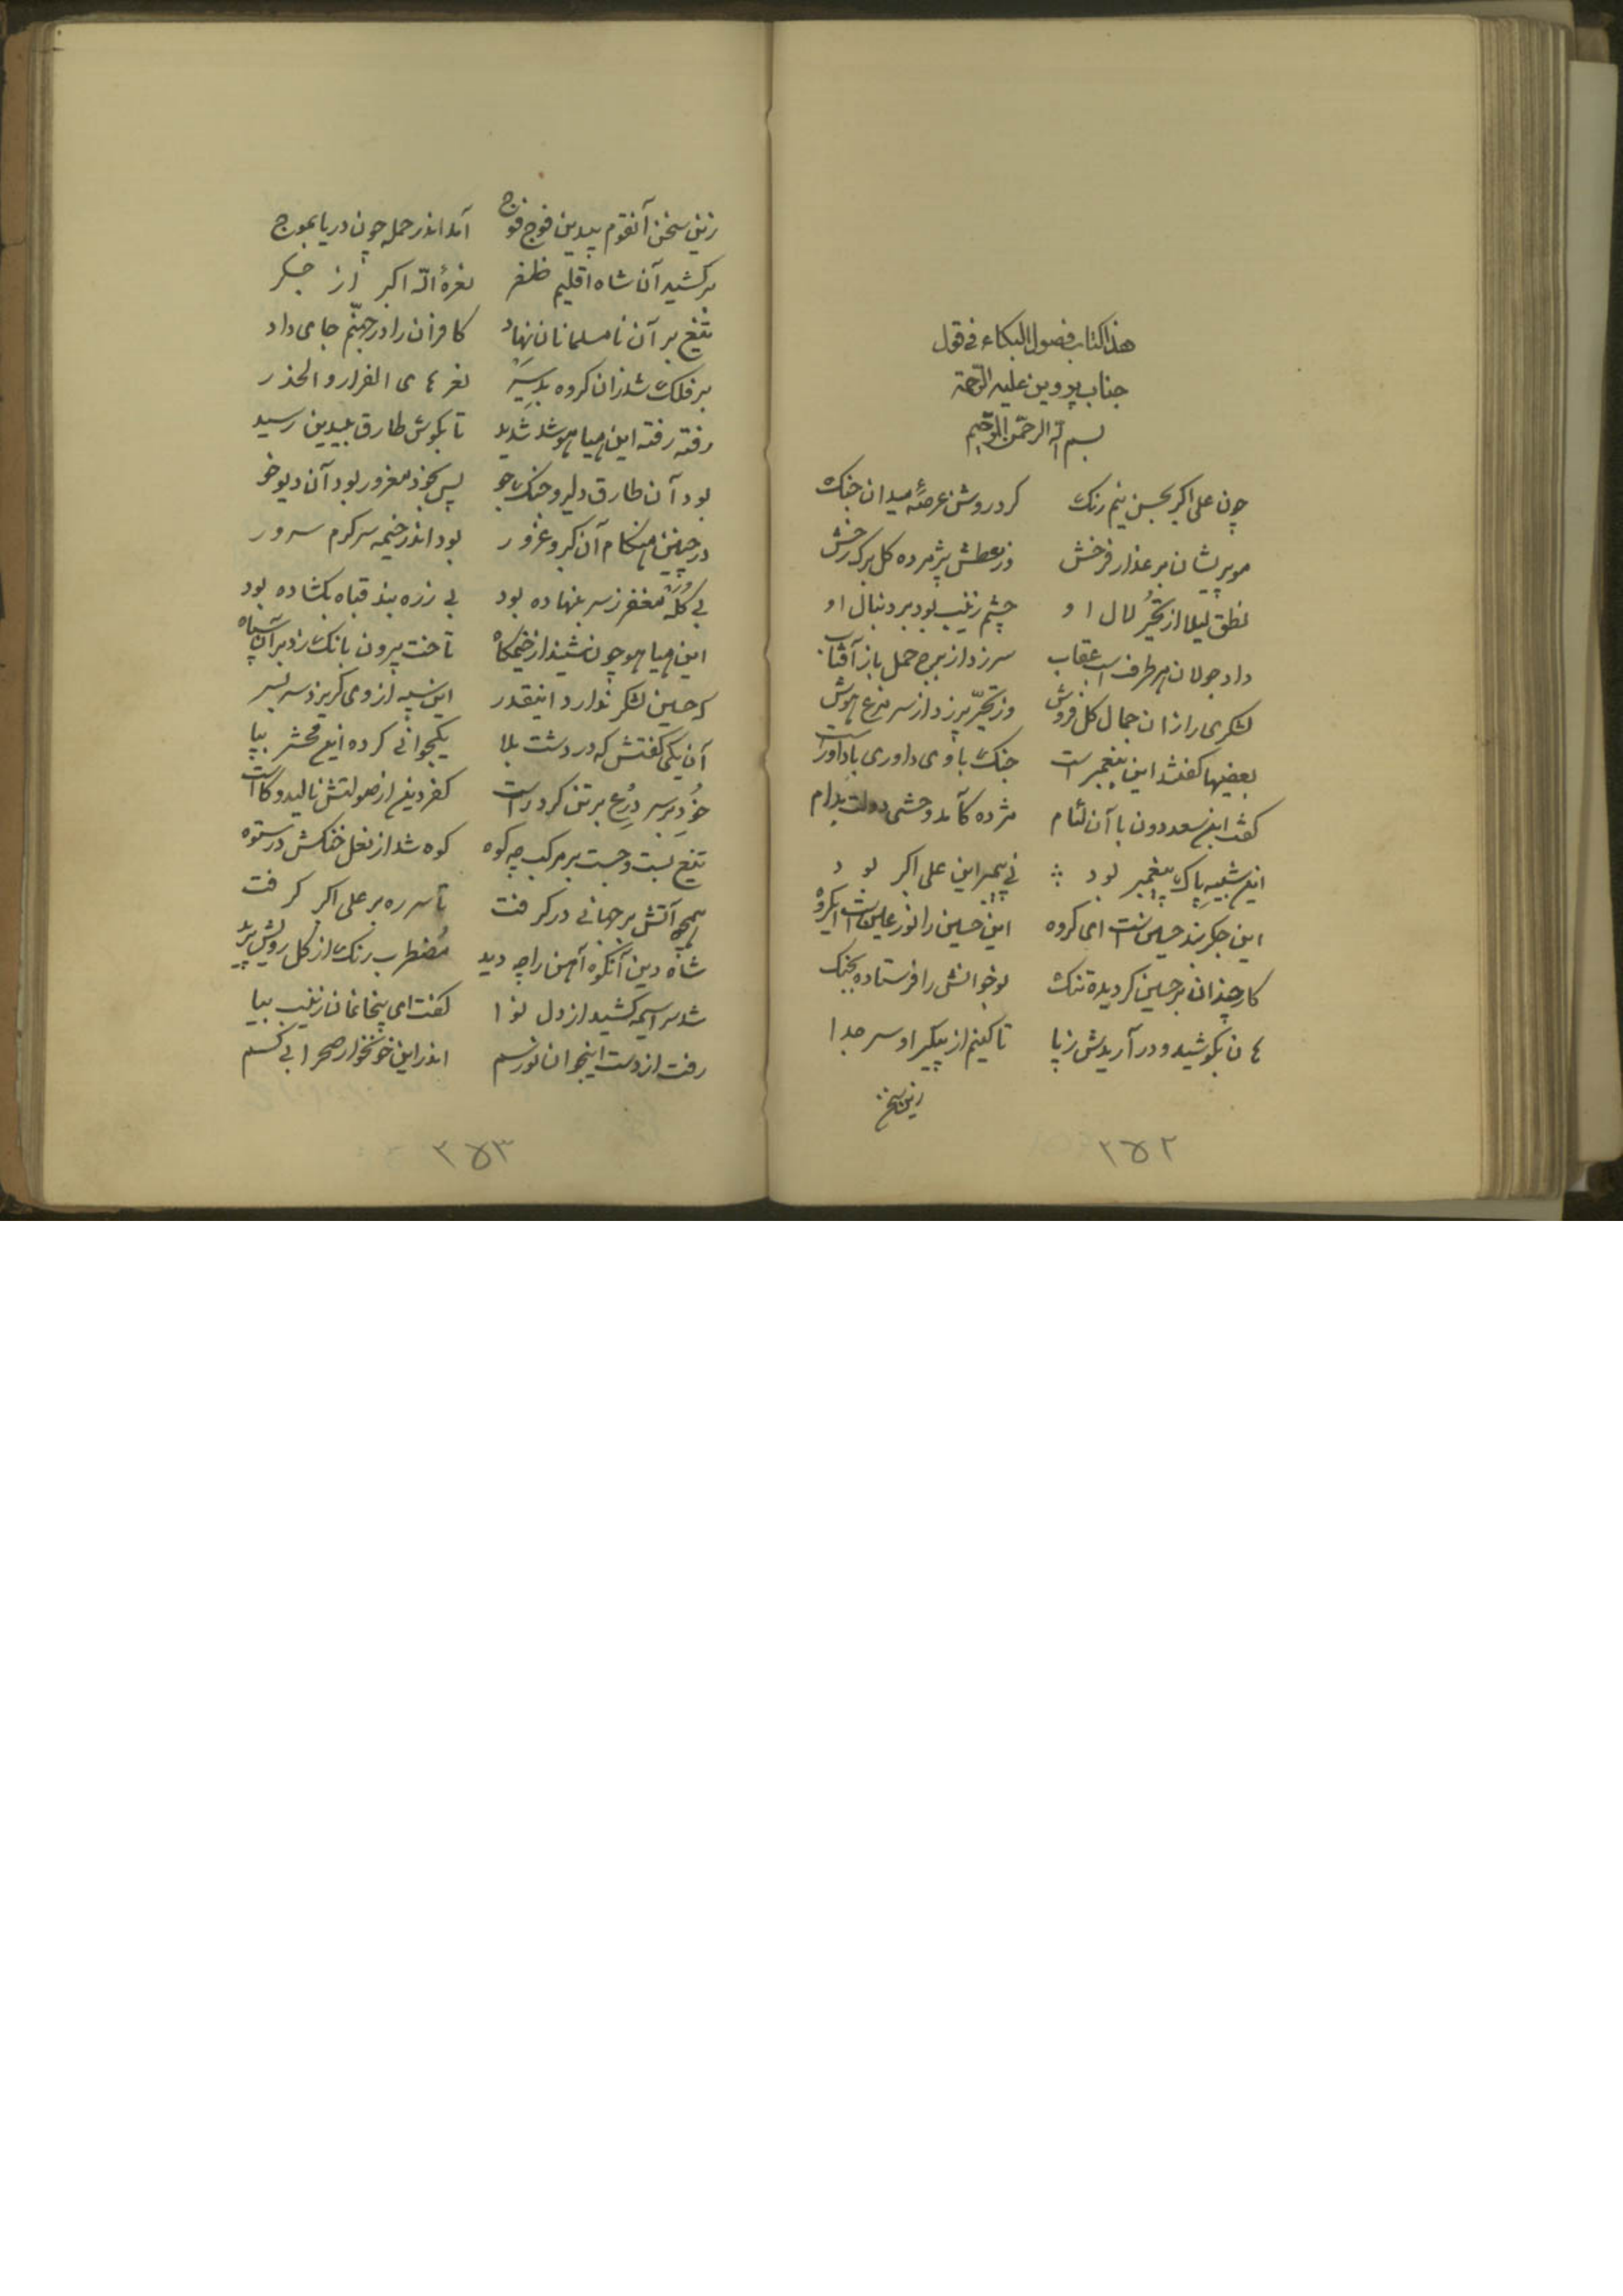 هذا الکتاب فصول البکاء فی قول
جناب پروین علیه الرحمة
بسم الله الرحمن الرحیم
چون علی اکبر بحسن نیم رنک کرد روش عرصهٔ میدان جنک
مو پریشان بر عذار فرخش وز عطش پژمرده کل برک رخش
نطق لیلا از تحیّر لال او چشم زینب بود بر دنبال او
داد جولان هر طرف اسب عقاب سر زد از برج حمل باز آفتاب
لشکری را زان جمال کل فروش وز تحیّر پر زد از سر مرغ هوش
بعضیها کفتند این پیغمبر است جنک با وی داوری با داور است
کفت ابن سعد دون با آن لئام مژده کآمد وحشی دولت بدام
این شبیه پاک پیغمبر بود نی پیمبر این علی اکبر بود
این جکربند حسین است ای کروه این حسین را نور عین است ایکروه
کار چندان بر حسین کردیده تنک نوخوانش را فرستاده بجنک
هان بکوشید و در آریدش ز پا تا کنیم از پیکر او سر جدا
زین سخن
۲۵۲
زین سخن آنقوم بیدین فوج فوج آمد اندر حمله چون دریا بموج
برکشید آن شاه اقلیم ظفر نعرهٔ الله اکبر از جکر
تیغ بر آن نامسلمانان نهاد کافران را در جهنّم جای داد
بر فلک شد زان کروه بد سیر نعرهای الفرار و الحذر
رفته رفته این هیاهو شد شدید تا بکوش طارق بیدین رسید
بود آن طارق دلیر و جنک جو پس بخود مغرور بود آن دیوخو
در چنین هنکام آن کبر و غرور بود اندر خیمه سرکرم سرور
بی کُلَه مغفر ز سر بنهاده بود بی زره بند قباه بکشاده بود
این هیاهو چون شنید از خیمکاه تاخت بیرون بانک زد بر آن سپاه
که حسین لشکر ندارد اینقدر این سپه از وی کریزد سر بسر
آن یکی کفتش که در دشت بلا یکجوانی کرده این محشر بپا
خُود بر سر دِرع بر تن کرد راست کفر دین از صولتش نالید و کاست
تیغ بست و جست بر مرکب چه کوه کوه شد از نعل خنکش در ستوه
همچه آتش بر جهانی در کرفت تا سر ره بر علی اکبر کرفت
شاه دین آنکوه آهن را چه دید مُضطرب رنک از کل رویش پرید
شد سراسیمه کشید از دل نوا کفت ای بیخانمان زینب بیا
رفت از دست اینجوان نورسم اندر این خونخوار صحرا بی کسم
۲۵۳